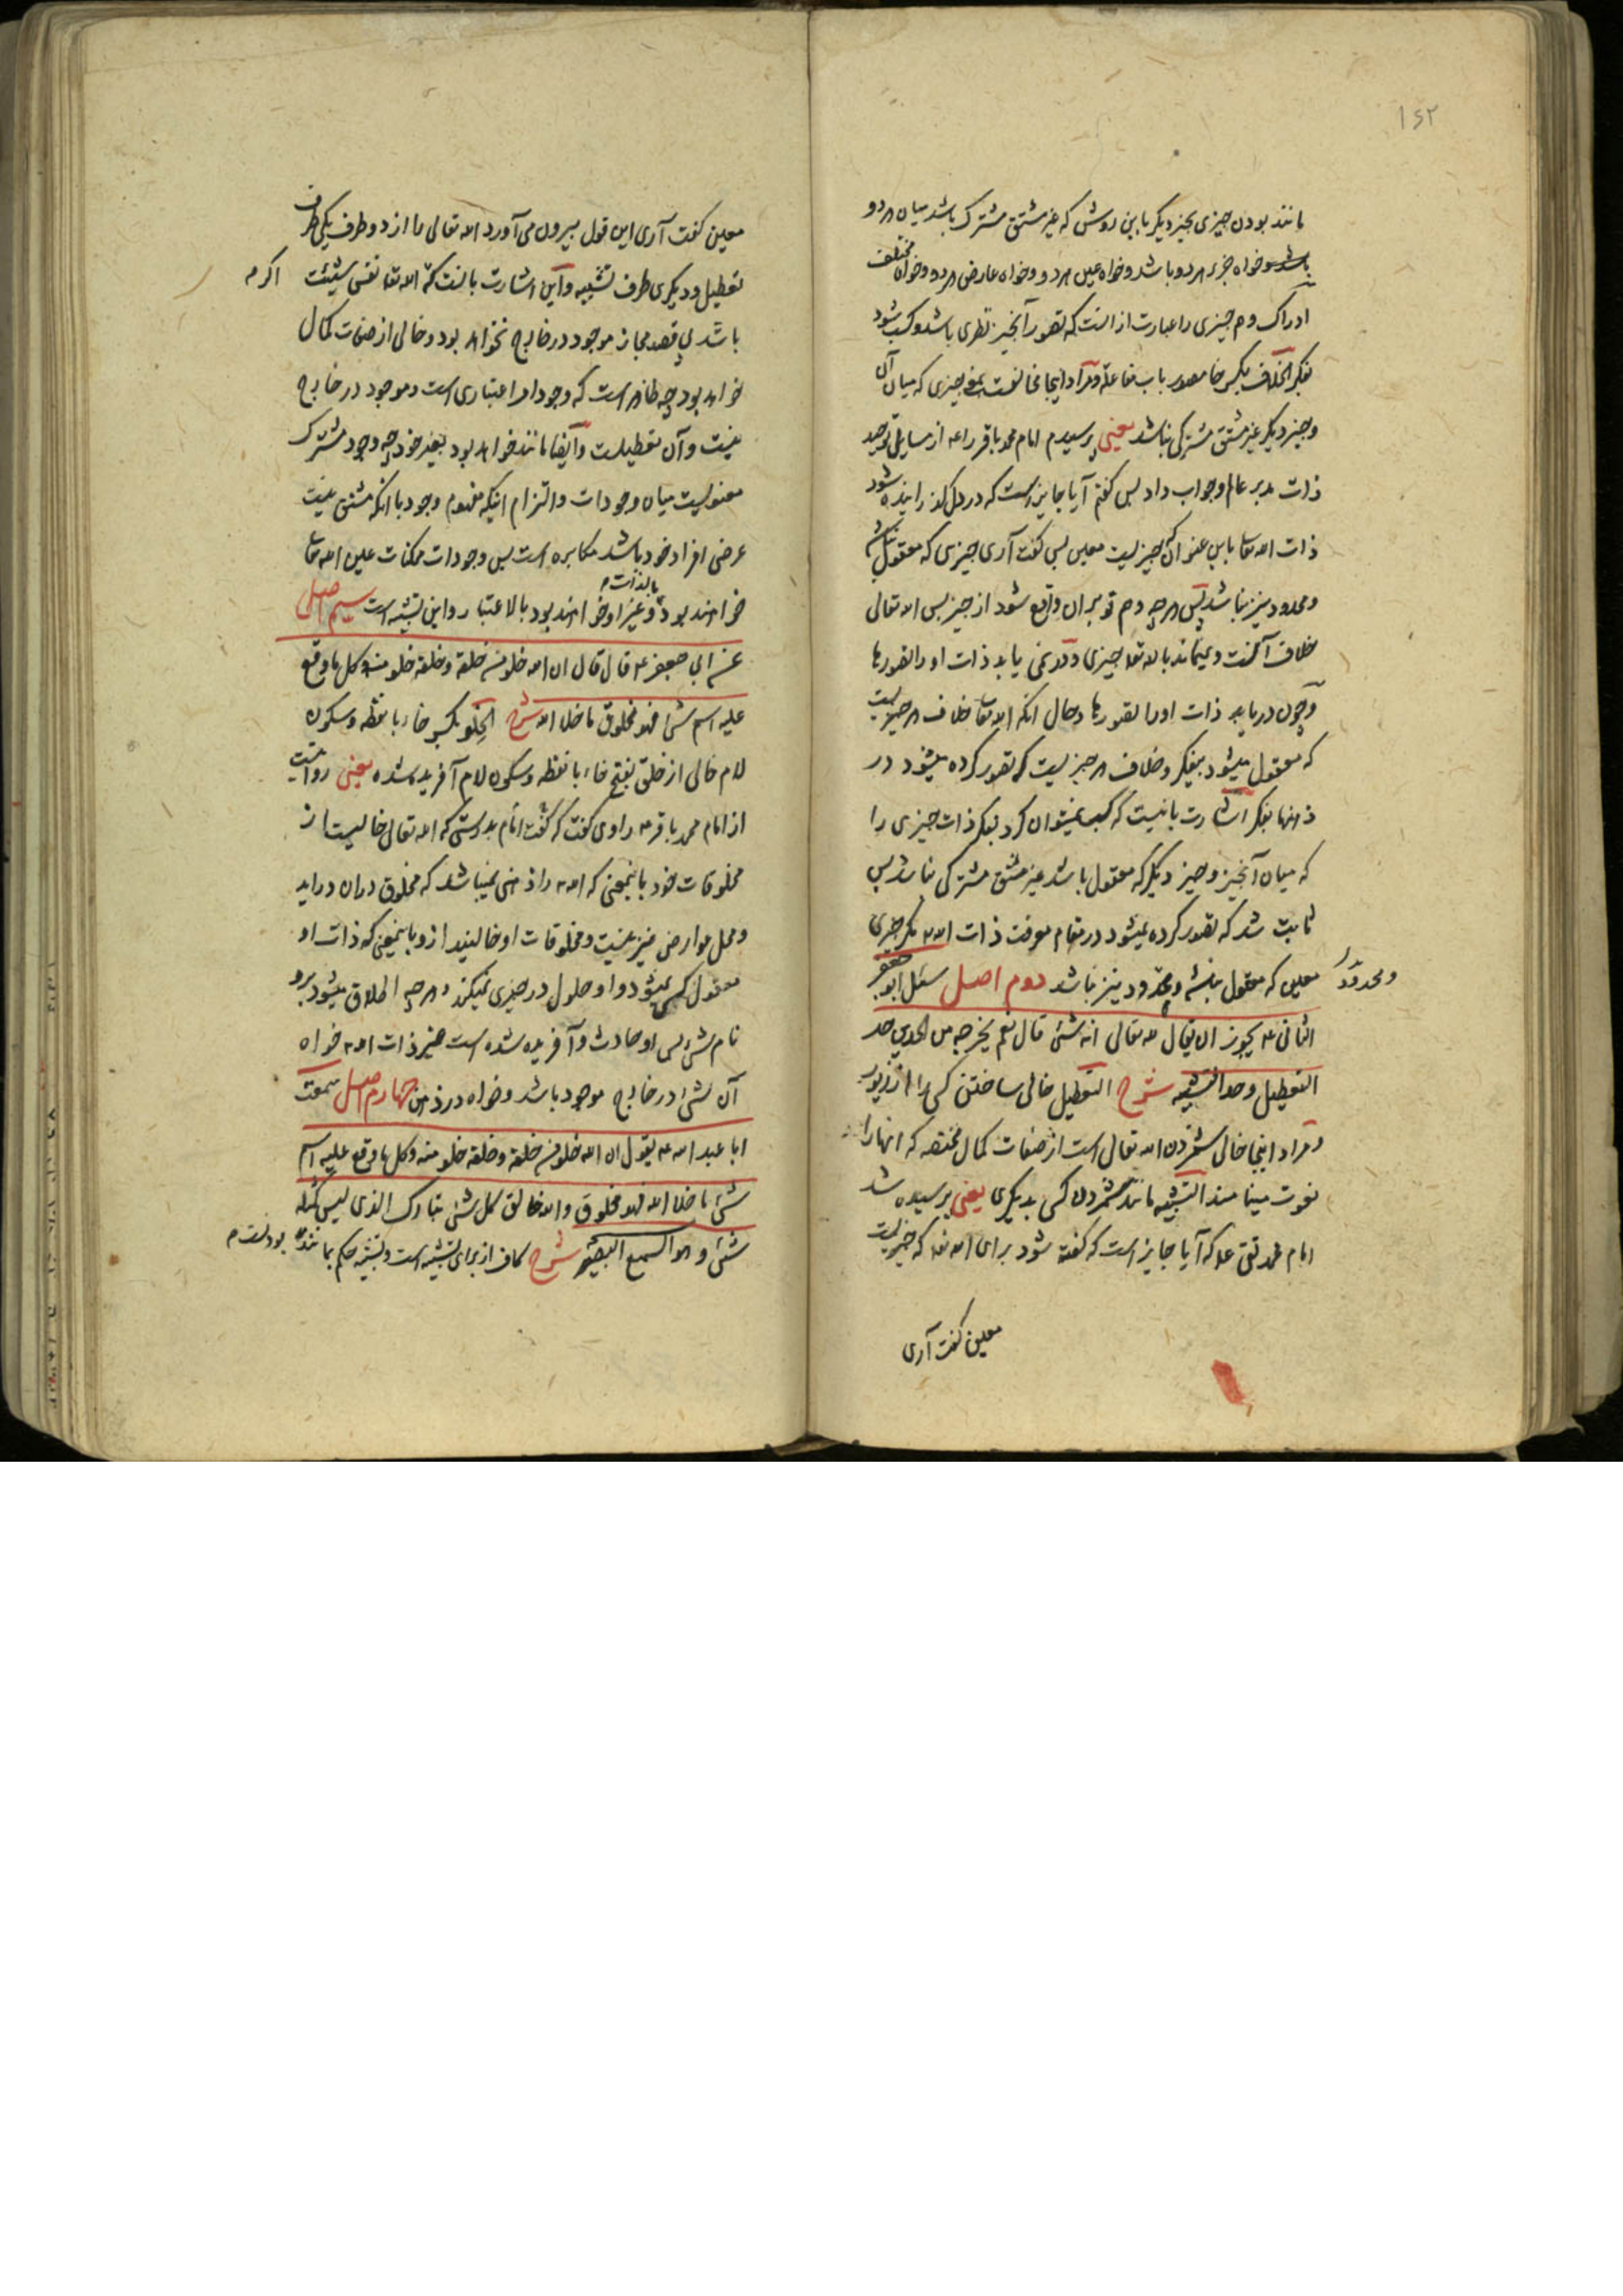 ۱۶۲
مانند بودن چیزی بچیز دیگر باین روش که غیر مشتق مشترک باشد میان هر دو
خواه جزء هر دو باشد و خواه عین هر دو و خواه عارض هر دو و خواه مختلف
ادراک وهم چیزی را عبارت از آنست که تصور آنچیز نظری باشد و کسب شود
بفکر الخلاف بکسر خا مصدر باب مفاعله و مراد اینجا مخالفت چیزی که میان آن
و چیز دیگر غیر مشتق مشترکی نباشد یعنی پرسیدم امام محمد باقر را ع از مسایل توحید
ذات مدبر عالم و جواب داد پس گفتم آیا جایز است که در دل گذرانیده شود
ذات الله تعا باین عنوان که چیزیست معین پس گفت آری چیزی که معقول نباشد
و محدود نیز نباشد پس هر چه وهم تو بر آن واقع شود از چیز پس الله تعالی
خلاف آنست و نمیماند بالله تعا چیزی و در نمی یابد ذات او را تصورها
و چون دریابد ذات او را تصورها و حال آنکه الله تعا خلاف هر چیزیست
که معقول میشود بفکر و خلاف هر چیزیست که تصور کرده میشود در
ذهنها بفکر اشارت باینست که کسب نمیتوان کرد بفکر ذات چیزی را
که میان آنچیز و چیز دیگر که معقول باشد غیر مشتق مشترکی نباشد پس
ثابت شد که تصور کرده نمیشود در مقام معرفت ذات الله مگر چیزی
معین که معقول نباشد و محدود نیز نباشد دوم اصل سئل ابو جعفر
و محدود
الثانی ع یجوز ان یقال لله تعالی انه شئ قال نعم یخرجه من الحدین حد
التعطیل و حد التشبیه شرح التعطیل خالی ساختن کسی را از زیور
و مراد اینجا خالی شمردن الله تعالی است از صفات کمال مختصه که آنها را
نعوت مینامند التشبیه مانند شمردن کسی بدیگری یعنی پرسیده شد
امام محمد تقی ع که آیا جایز است که گفته شود برای الله تعا که چیزیست
معین گفت آری
معین گفت آری این قول بیرون می آورد الله تعالی را از دو طرف یکی طرف
تعطیل و دیگری طرف تشبیه و این اشارت بآنست که الله تعا نفس شیئیت
اگر م
باشد بی قصد مجاز موجود در خارج نخواهد بود و خالی از صفات کمال
خواهد بود چه ظاهر است که وجود امر اعتباری است و موجود در خارج
نیست و آن تعطیلست و ایضا مانند خواهد بود بغیر خود چه وجود مشترک
معنویست میان وجودات و التزام اینکه مفهوم وجود با آنکه مشتق نیست
عرضی افراد خود باشد مکابره است پس وجودات ممکنات عین الله تعا
خواهند بود بالذات م و غیر او خواهند بود بالاعتبار و این تشبیه است سیم اصل
عن ابی جعفر ع قال قال ان الله خلو من خلقه و خلقه خلو منه و کل ما وقع
علیه اسم شئ فهو مخلوق ما خلا الله شرح الخلو بکسر خاء با نقطه و سکون
لام خالی از خلق بفتح خاء با نقطه و سکون لام آفریده شده یعنی روایتست
از امام محمد باقر ع راوی گفت که گفت امام بدرستی که الله تعالی خالیست از
مخلوقات خود باینمعنی که الله را ذهنی نمیباشد که مخلوق در آن درآید
و محل عوارض نیز نیست و مخلوقات او خالیند از و باینمعنی که ذات او
معقول کسی نمیشود و او حلول در چیزی نمیکند و هر چه اطلاق میشود برو
نام شئ پس او حادث و آفریده شده است غیر ذات الله خواه
آن شئ در خارج موجود باشد و خواه در ذهن چهارم اصل سمعت
ابا عبد الله ع یقول ان الله خلو من خلقه و خلقه خلو منه و کل ما وقع علیه اسم
شئ ما خلا الله فهو مخلوق و الله خالق کل شئ تبارک الذی لیس کمثله
شئ و هو السمیع البصیر شرح کاف از برای تشبیه است و تشبیه حکم بمانند بودنست م